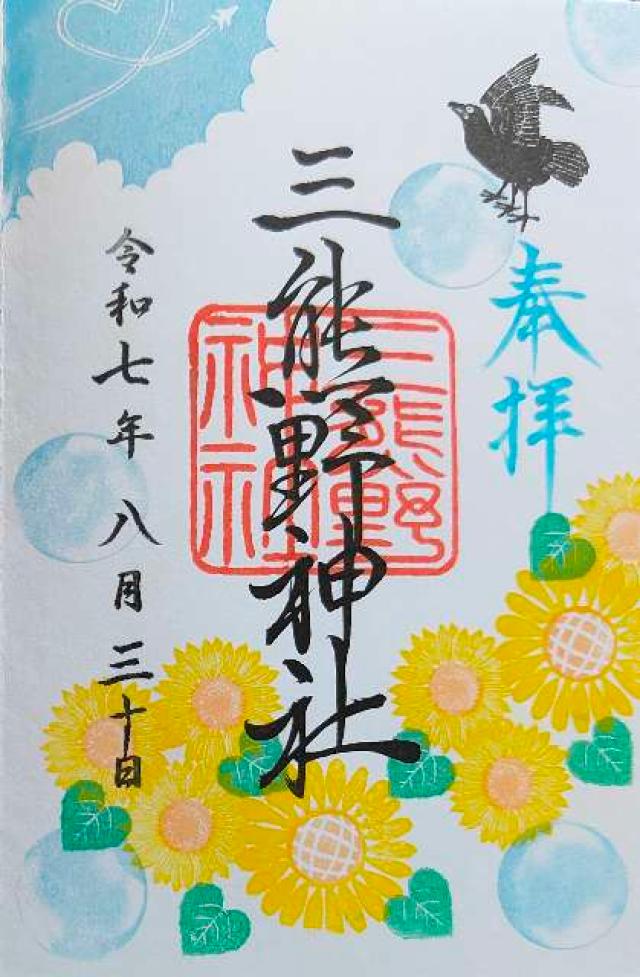 奉拝
三熊野神社
三熊野
神社
令和七年八月三十日